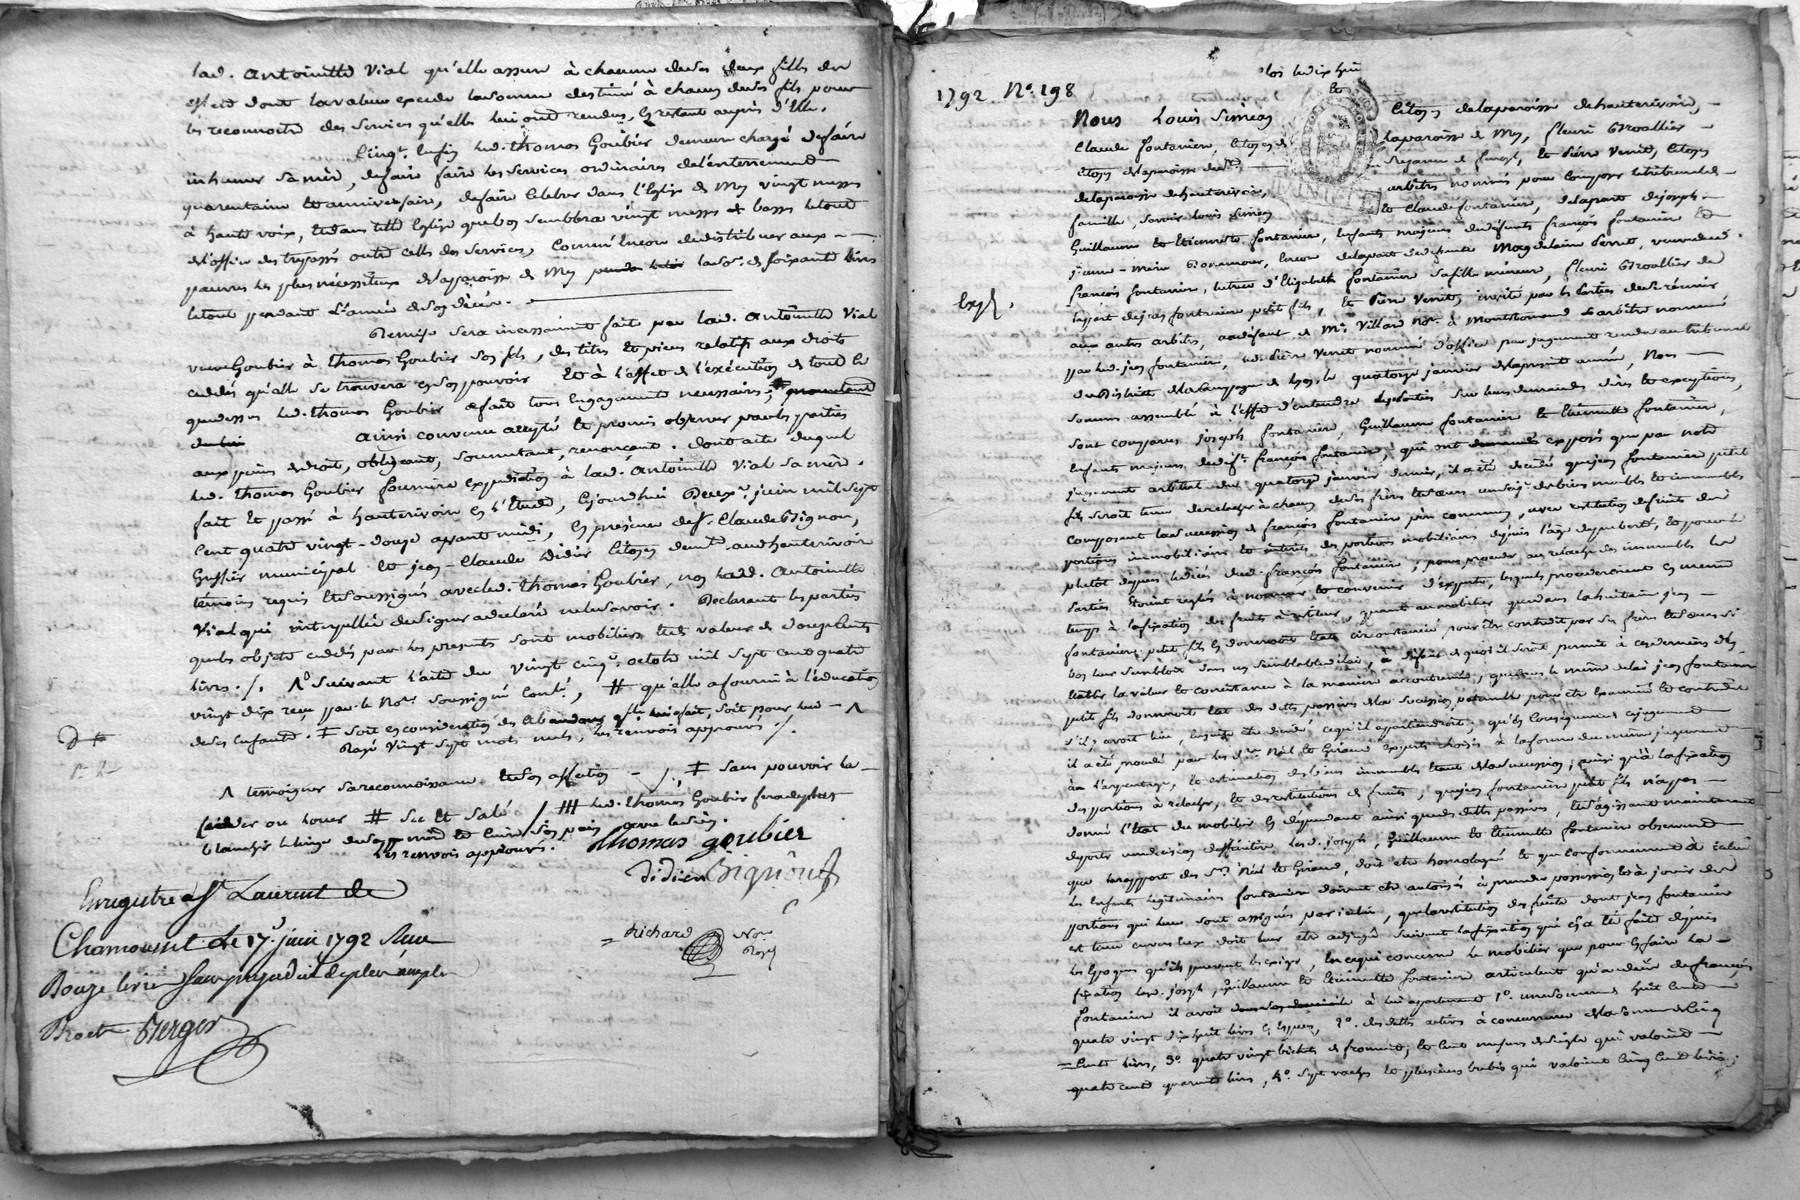 lad. Antoinette Vial qu'elle assure à chacune de ses deux filles
est dont la valeur excede la somme destiné à chacun de ses fils pour
les reconnoitre des services qu'elles lui ont rendus, en restant auprès d'elle.
Cinq.t enfin led. Thomas Goubier demeure chargé de faire
inhumer sa mère, de faire faire les services ordinaires de l'enterrement
quarantaine et anniversaire, de faire célébrer dans l'Eglise de Mey vingt messes
à haute voix, et dans telle Eglise que bon semblera vingt messes basses le tout
de l'office des trépassés outre celles des services, comme encore de distribuer aux
pauvres les plus nécessiteux de la paroisse de Mey la so.e de soixante livres
le tout pendant l'année de son décès.
Remise sera incessament faite par lad. Antoinette Vial
veuve Goubier à Thomas Goubier son fils, des titres et pièces relatifs aux droits
cédés qu'elle se trouvera en son pouvoir Et à l'effet de l'exécution de tout le
que dessus led. Thomas Goubier a fait tous engagements necessaires,
Ainsi convenu accepté et promis observer par les parties
aux peines de droit, obligeant, soumettant, renonçant. dont acte duquel
led. Thomas Goubier fournira expédition à lad. Antoinette Vial sa mère.
fait et passé à hauterivoire en l'Etude, ce jourd'hui Deux juin mil sept
cent quatre vingt-douze avant midi, en présence de s.r Claude Bignon,
Greffier municipal et jean-Claude Didier citoyen dem.t aud hauterivoire
témoins requis et soussignés avec led. Thomas Goubier, non lad. Antoinette
Vial qui interpellée de signer a déclaré ne le savoir. Declarant les parties
que les objets cédés par les présentes sont mobiliers et de valeur de douze cents
livres. /. Λ° suivant l'acte du vingt cinq. octobre mil sept cent quatre
vingt dix reçu par le No.re soussigné Cont.é, # qu'elle a fourni à l'éducation
de ses enfants. ‡ soit en considération des abandons qu'elle lui fait, soit pour led - Λ
Rayé vingt sept mots nuls, les renvois approuvés /.
Λ témoigner sa reconnoissance et son affection - /. ‡ sans pouvoir la
céder ou louer # sec et salé / ## led. Thomas Goubier fera de plus
blanchir le linge de sa mère et cuire son pain avec le sien.
Les renvois approuvés.
Thomas goubier
Didier Bignon
Richard No.re
Royal
Enregistré à S.t Laurent de
Chamousset Le 17. juin 1792 Reçu
Douze livres
Berger
1792 N.° 198
Nous Louis Simeon
Claude fontanier, Citoyen de
Citoyen de la paroisse de
de la paroisse de hauterivoire,
famille, savoir Louis Simeon
Citoyen de la paroisse de hauterivoire,
la paroisse de Mey, fleuri Broallier
et Pierre Verret, Citoyen
arbitres nommés pour composer le tribunal de
et Claude fontanier, de la part de joseph
Guillaume et Etiennette fontanier, enfants majeurs de defunts françois fontanier et
jeanne-Marie Bonamour, encore de la part de Magdelaine Perret, veuve de
françois fontanier, tutrice d'Elizabeth fontanier sa fille mineure, fleuri Broallier de
la part de jean fontanier petit fils, et Pierre Verret, invité par les parties de se réunir
aux autres arbitres, au défaut de M.e Villard No.re à Montromand arbitre nommé
par led. jean fontanier, led. Pierre Verret nommé d'office par jugement rendu au tribunal
du District de la Campagne de Lyon, le quatorze janvier de la presente année, Nous
sommes assemblés à l'effet d'entendre les parties sur leurs demandes, dires et exceptions,
sont comparus Joseph fontanier, Guillaume fontanier et Etiennette fontanier,
Enfants majeurs dud. f. françois fontanier, qui ont exposés que par notre
jugement arbitral du quatorze janvier dernier, il a été décidé que jean fontanier petit
fils seroit tenu de relacher à chacun de ses frères et soeurs
composant la succession de françois fontanier père commun, avec restitution de fruits des
portions immobilières et intérêts des portions mobiliaires depuis l'age de puberté,
plutot depuis le décès dud. françois fontanier, pour proceder au relache des immeubles les
parties étoient reglés à nommer et convenir d'experts, lesquels procederoient en meme
temps à la fixation des fruits à restituer, quant au mobilier que dans la huitaine jean
fontanier petit fils en donneroit état circonstancié pour être contredit par ses frères et soeurs si
bon leur sembloit dans un semblable délai, à défaut de quoi il seroit permis à ces derniers d'en
établir la valeur et consistance à la manière accoutumée, que dans le même delai jean fontanier
petit fils donneroit état des dettes passives de la succession, pour être examiné et contredit
s'il y avoit lieu, ensuite être decidé ce qu'il appartiendroit; qu'en conséquence
il a été procédé par les s.rs Nël et Giraud experts choisis à la forme du même jugement
à l'arpentage, et estimation des biens immeubles étant de la succession, ainsi qu'à la fixation
des portions à relacher, et des restitutions de fruits, que jean fontanier petit fils n'a pas
donné l'état du mobilier en dependant ainsi que des dettes passives, et s'agissant maintenant
de porter une décision définitive, lesd. joseph, Guillaume et Etiennette fontanier observent
que le rapport des s.rs Nël et Giraud, doit être homologué et que conformement à icelui
les Enfants légitimaires fontanier doivent être autorisés à prendre possession et à jouir des
portions qui leur sont assignés par icelui, que la restitution des fruits dont jean fontanier
est tenu envers eux doit leur être adjugé suivant la fixation qui en a été faite depuis
les époques qu'ils peuvent les exiger, en ce qui concerne le mobilier que pour en faire la
fixation lesd. joseph, Guillaume et Etiennette fontanier articulent qu'au décès de françois
fontanier il avoit à lui appartenant 1.° une somme de huit cents
quatre vingt dix huit livres en espèces, 2.° des dettes actives à concurrence de la somme de cinq
cents livres, 3.° quatre vingt bichets de froment, et cent mesures de seigle qui valoient
quatre cent quarante livres, 4.° sept vaches et plusieurs brebis qui valoient cinq cent livres;